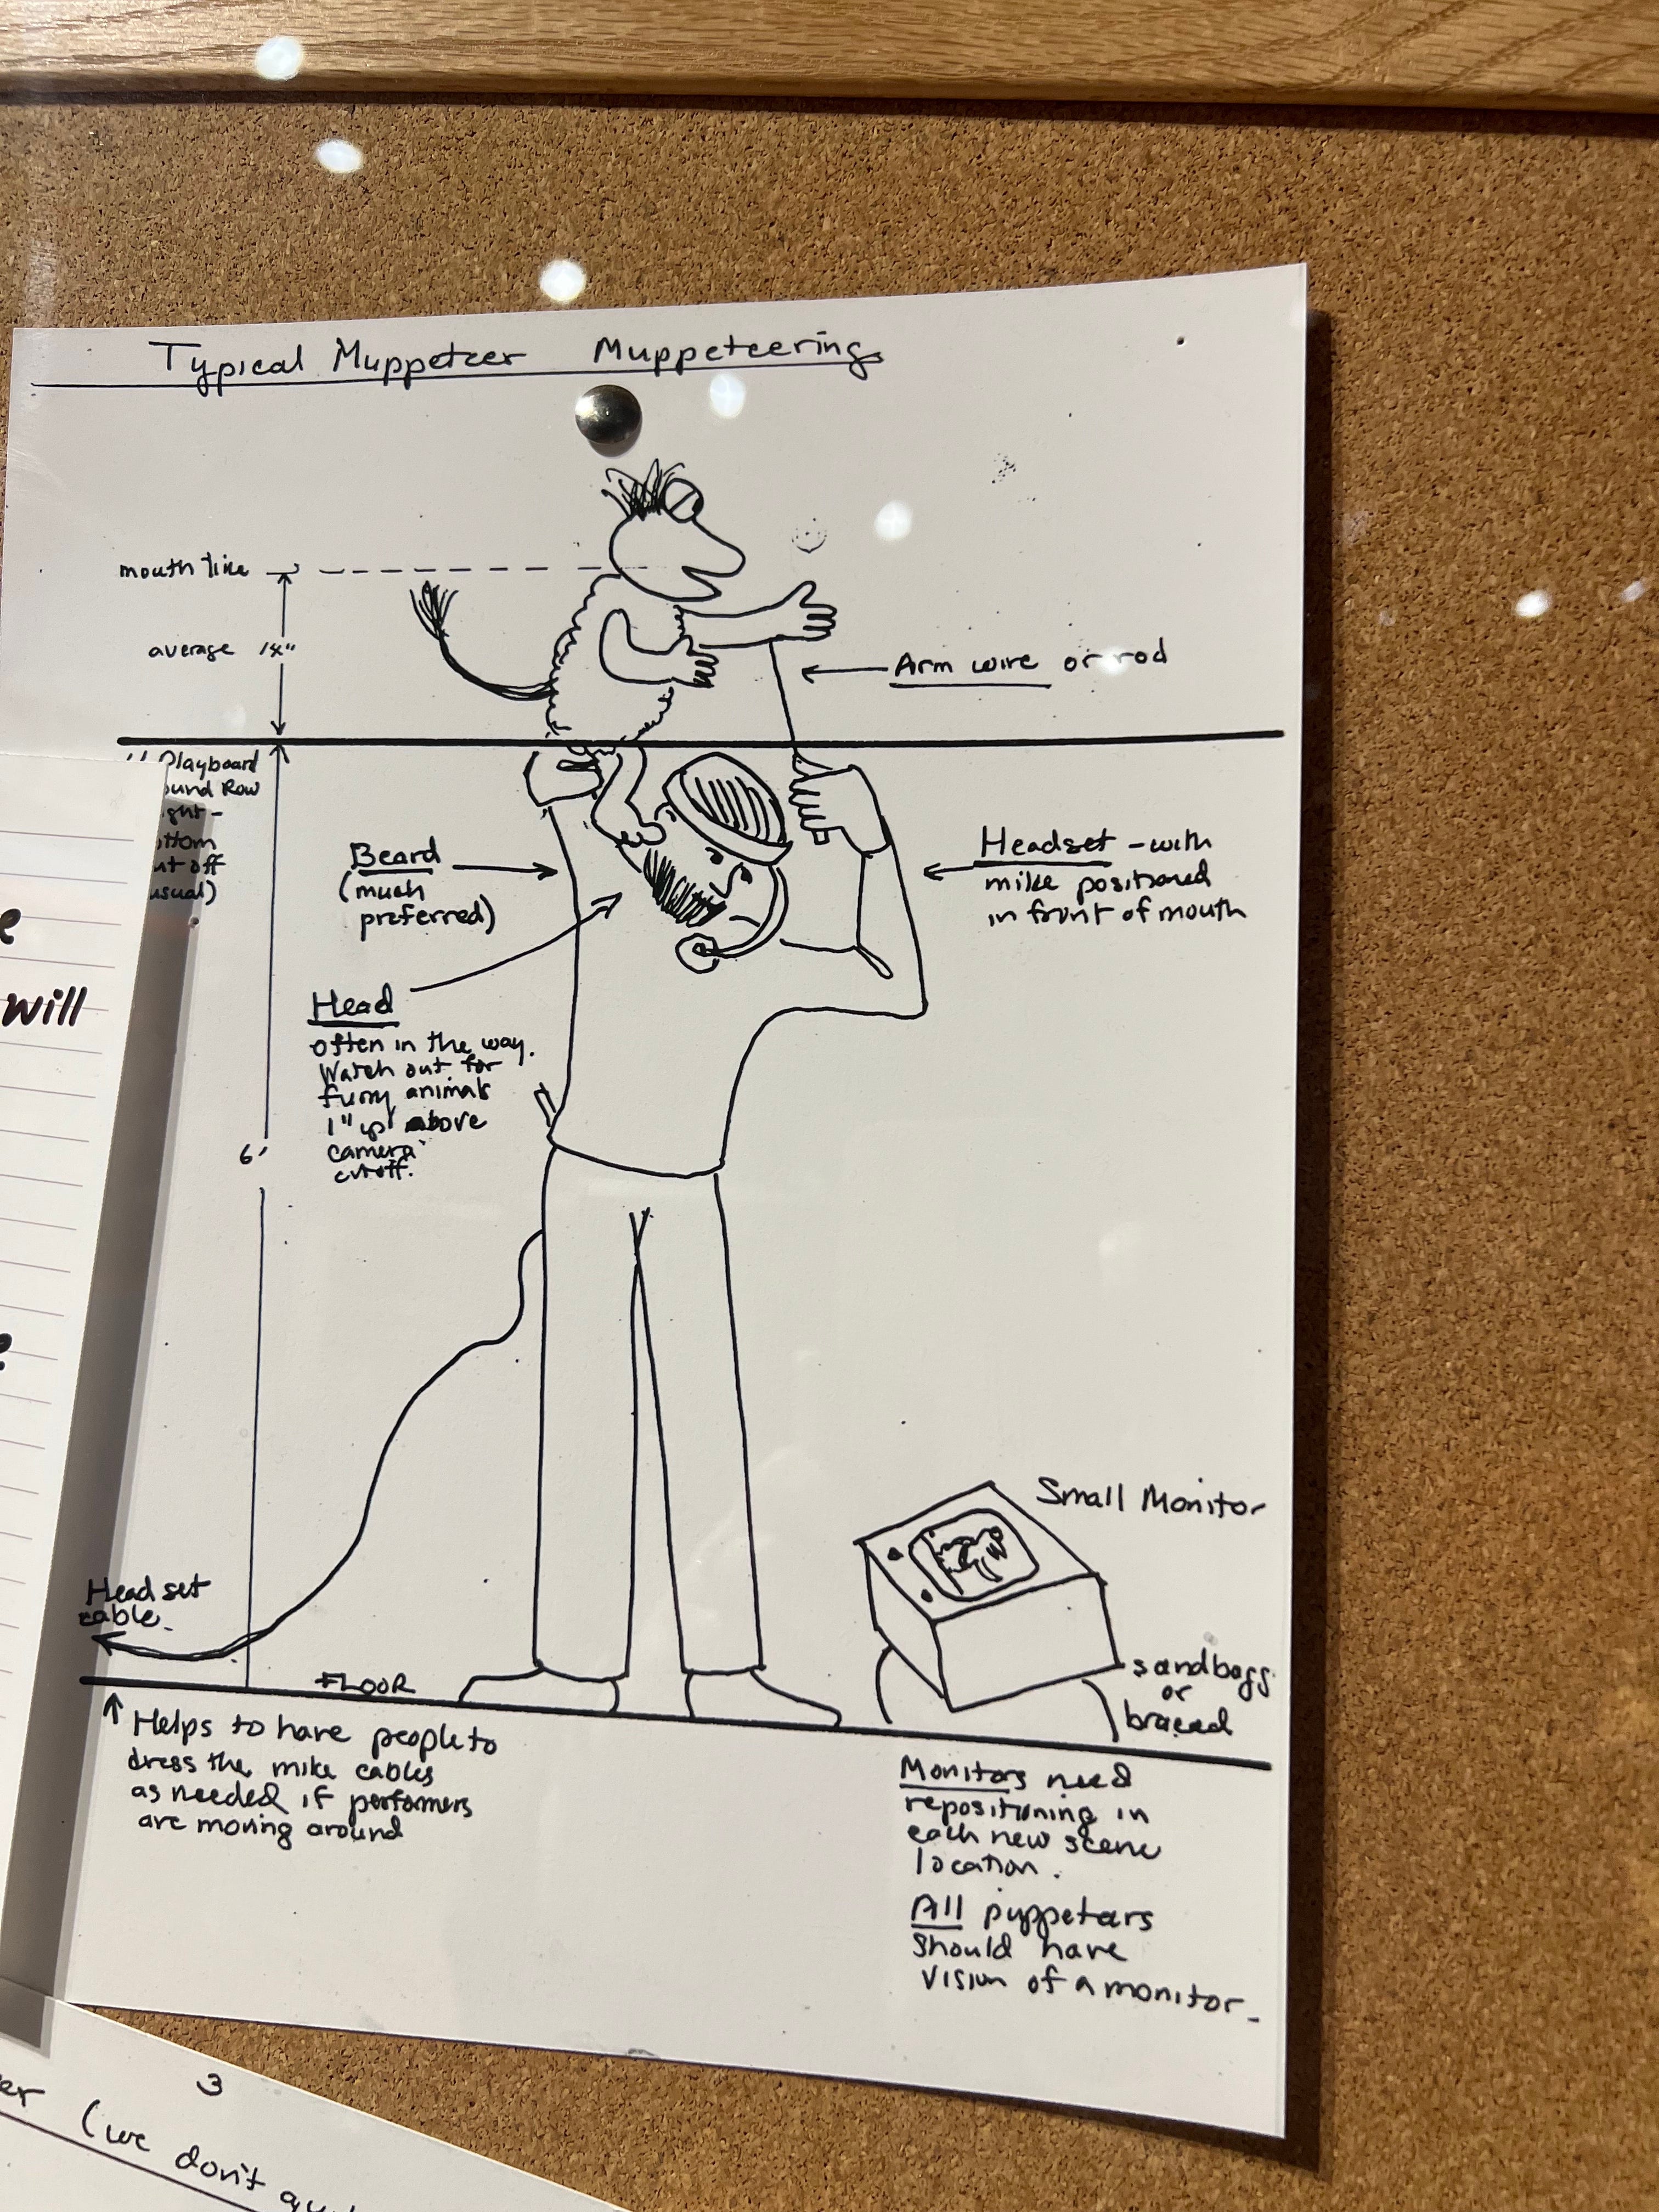 Typical Muppeteer Muppeteering
mouth line
average 14"
Arm wire or rod
Playboard
ound Row
ght -
ottom
ut off
usual)
Beard
(much
preferred)
Headset - with
mike positioned
in front of mouth
Head
often in the way.
Watch out for
furry animals
1" up above
camera
cutoff.
6'
Small Monitor
Head set
cable.
FLOOR
sandbags
or
braced
Helps to have people to
dress the mike cables
as needed if performers
are moving around
Monitors need
repositioning in
each new scene
location.
All puppeteers
should have
vision of a monitor.
e
will
?
3
er (we don't